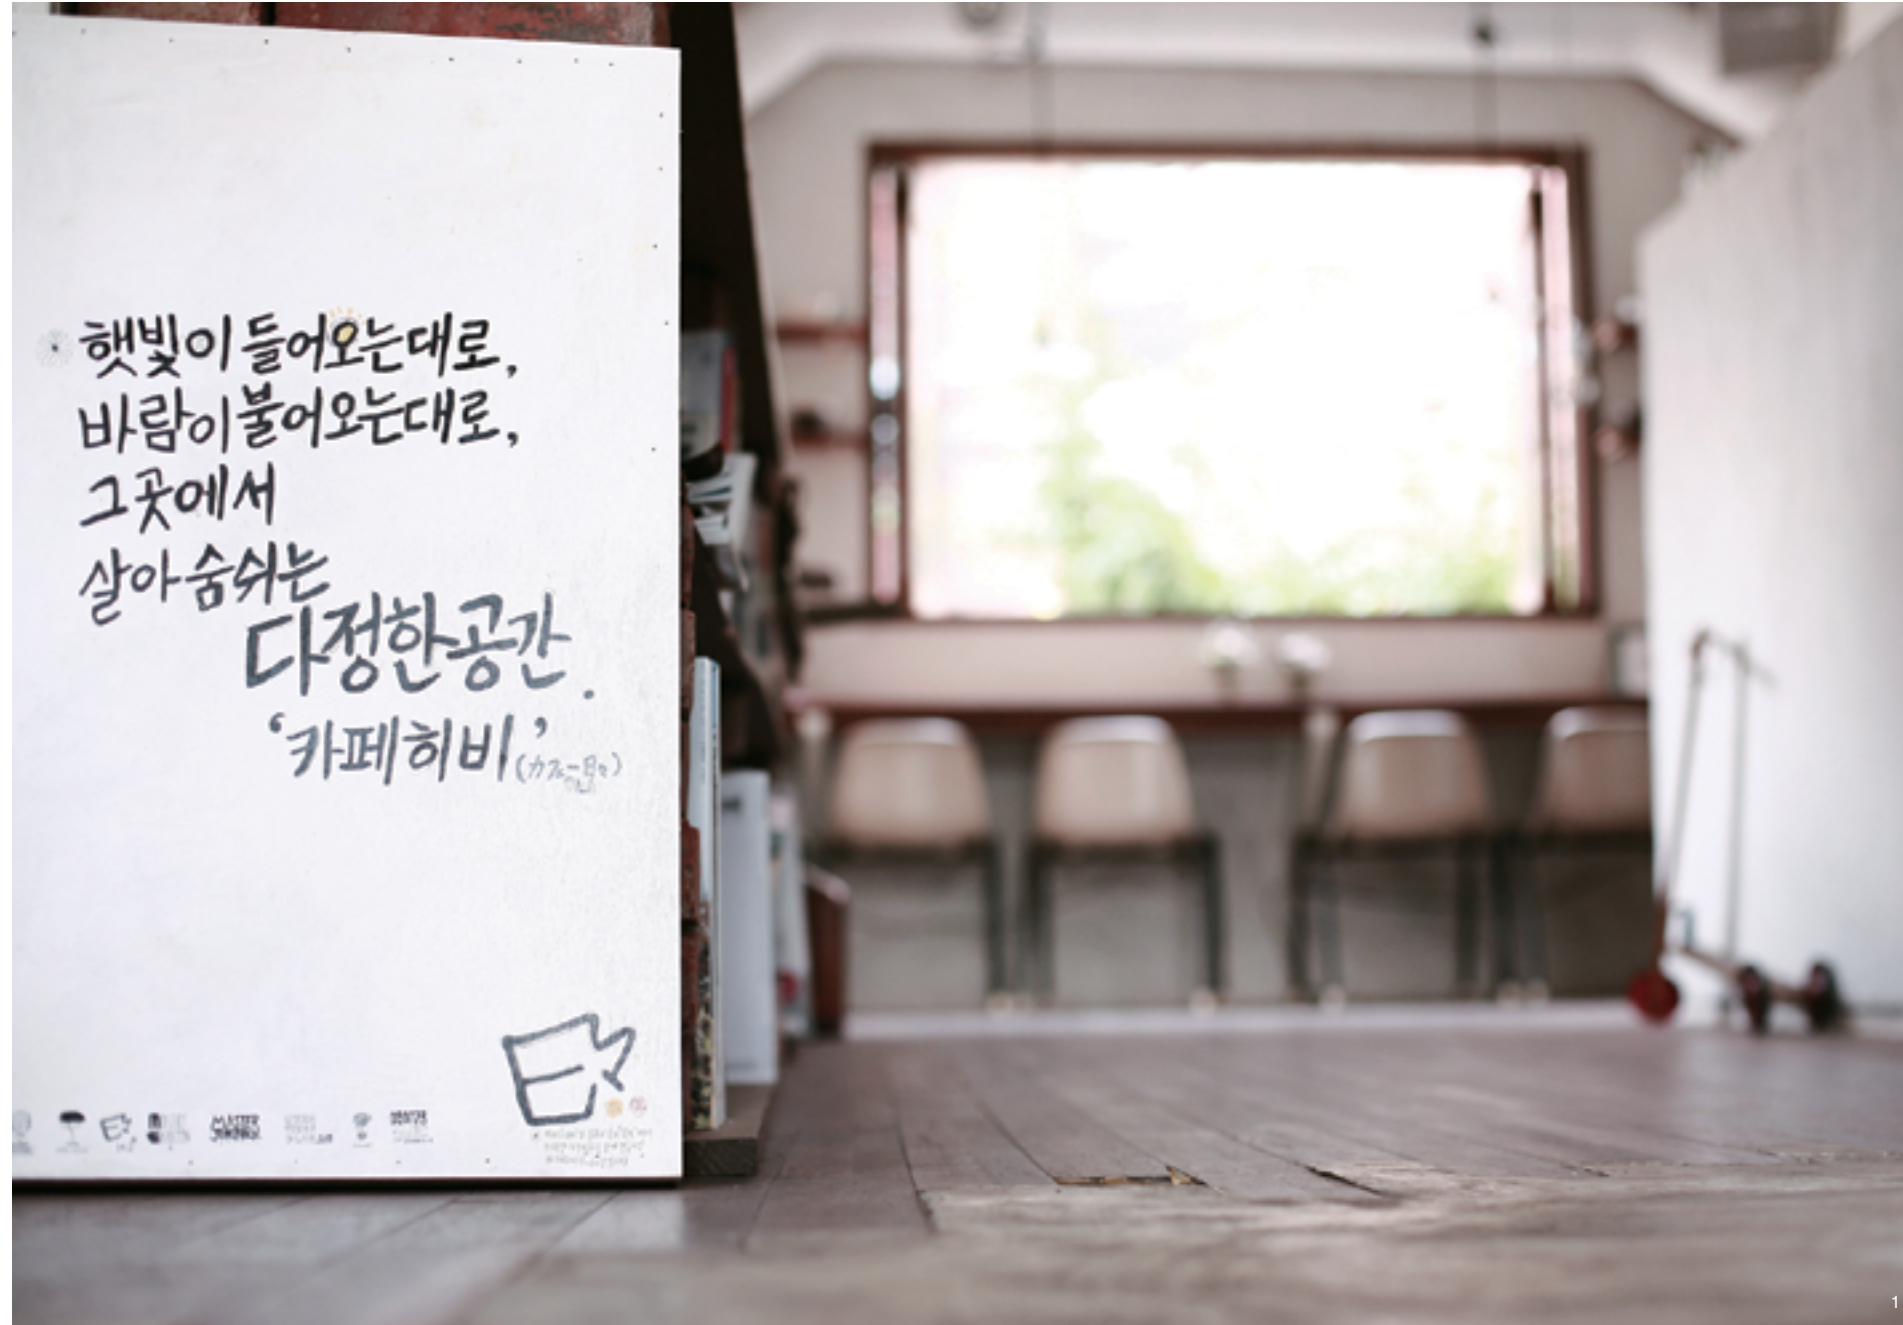 햇빛이 들어오는대로,
바람이 불어오는대로,
그곳에서
살아 숨쉬는
다정한 공간.
‘카페히비’
1